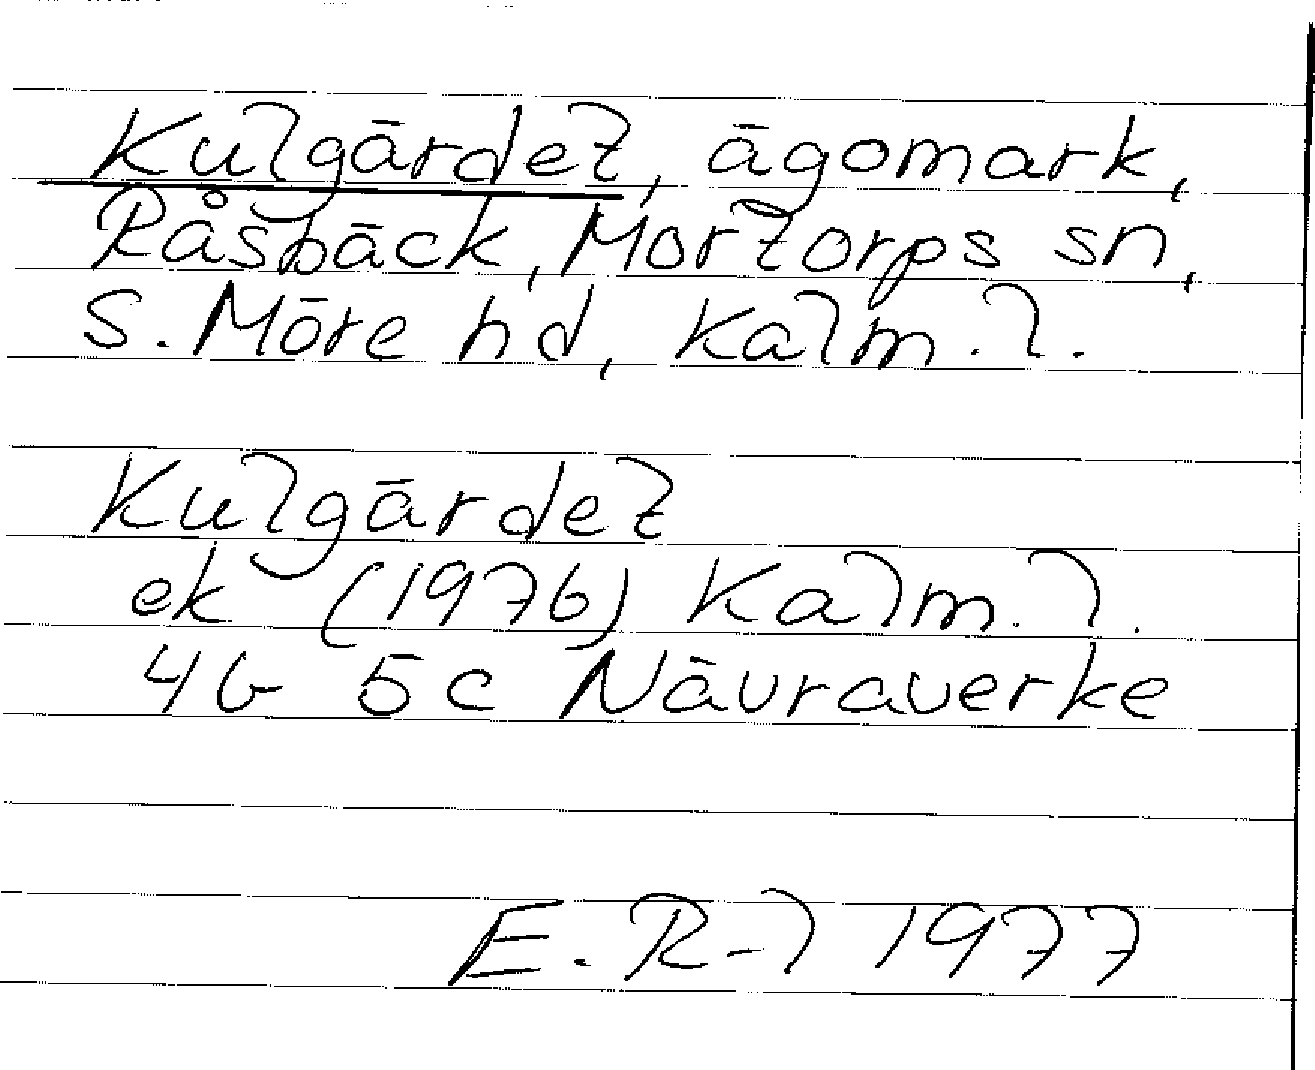 Kulgärdet, ägomark,
Råsbäck, Mortorps sn,
S. Möre hd, Kalm. l.
Kulgärdet
ek (1976) Kalm. l.
4G 5c Nävraverke
E. R-l 1977